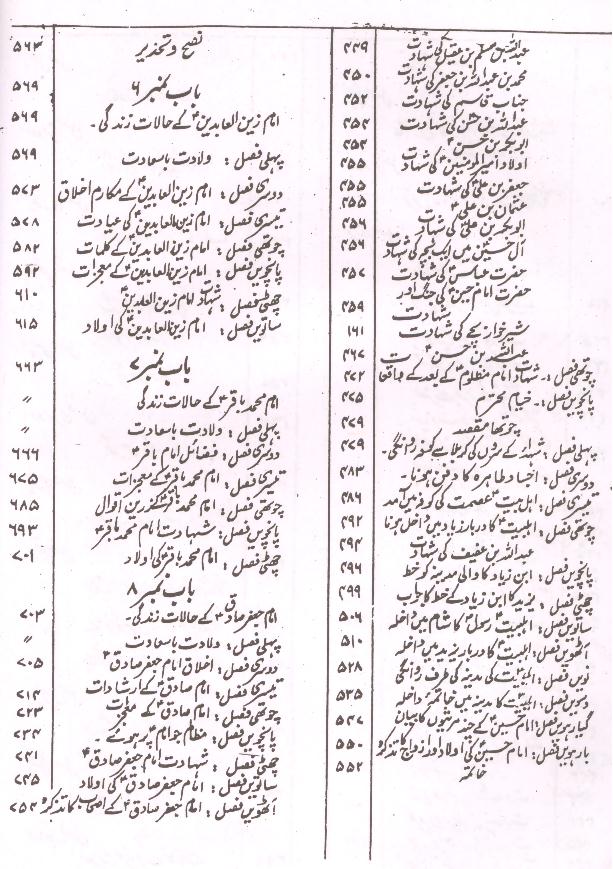 عبداللہ بن مسلم بن عقیل کی شہادت ۴۴۹
محمد بن عبداللہ بن جعفر کی شہادت ۴۵۰
جناب قاسم کی شہادت ۴۵۲
عبداللہ بن حسن کی شہادت ۴۵۴
ابوبکر بن حسن ۴۵۴
اولاد امیرالمومنین کی شہادت ۴۵۵
جعفر بن علی کی شہادت ۴۵۵
عثمان بن علی ۴۵۵
ابوبکر بن علی کی شہادت ۴۵۶
آل حسین میں ایک بچہ کی شہادت ۴۵۶
حضرت عباس کی شہادت ۴۵۷
حضرت امام حسین کی جنگ اور شہادت ۴۵۹
شیرخوار بچے کی شہادت ۱۶۱
عبداللہ بن حسن ۴۶۷
چوتھی فصل :۔ شہادت امام مظلوم کے بعد کے واقعات ۴۷۲
پانچویں فصل :۔ خیام محترم ۴۷۵
چوتھا مقصد ۴۷۹
پہلی فصل : شہداء کے سروں کی کربلا سے کوفہ روانگی۔ ۴۷۹
دوسری فصل : اجساد طاہرہ کا دفن ہونا۔ ۴۸۳
تیسری فصل : اہل بیت عصمت کی کوفہ میں آمد ۴۸۶
چوتھی فصل : اہلبیت کا دربار زیاد میں داخل ہونا ۴۹۲
عبداللہ بن عفیف کی شہادت ۴۹۴
پانچویں فصل : ابن زیاد کا والی مدینہ کو خط ۴۹۶
چھٹی فصل : یزید کا ابن زیاد کے خط کا جواب ۴۹۹
ساتویں فصل : اہلبیت رسول کا شام میں داخلہ ۵۰۶
آٹھویں فصل : اہلبیت کا دربار یزید میں داخلہ ۵۱۰
نویں فصل : اہلبیت کی مدینہ کی طرف روانگی ۵۲۸
دسویں فصل : اہلبیت کا مدینہ میں داخلہ ۵۳۵
گیارہویں فصل : امام حسین کے چند مرثیوں کا بیان ۵۴۷
بارہویں فصل : امام حسین کی اولاد اور ازواج کا تذکرہ ۵۵۰
خاتمہ ۵۵۲
نصح و تحذیر ۵۶۳
باب نمبر ۶ ۵۶۹
امام زین العابدین کے حالات زندگی۔ ۵۶۹
پہلی فصل : ولادت باسعادت ۵۶۹
دوسری فصل : امام زین العابدین کے مکارم اخلاق ۵۷۳
تیسری فصل : امام زین العابدین کی عبادت ۵۷۸
چوتھی فصل : امام زین العابدین کے کلمات ۵۸۲
پانچویں فصل : امام زین العابدین کے معجزات ۵۹۲
چھٹی فصل : شہادت امام زین العابدین ۶۱۰
ساتویں فصل : امام زین العابدین کی اولاد ۶۱۵
باب نمبر ۷ ۶۶۳
امام محمد باقر کے حالات زندگی ״
پہلی فصل : ولادت باسعادت ״
دوسری فصل : فضائل امام باقر ۶۶۶
تیسری فصل : امام محمد باقر کے معجزات ۶۷۵
چوتھی فصل : امام محمد باقر کے زرین اقوال ۶۸۵
پانچویں فصل : شہادت امام محمد باقر ۶۹۳
چھٹی فصل : امام محمد باقر کی اولاد ۷۰۱
باب نمبر ۸
امام جعفر صادق کے حالات زندگی۔ ۷۰۳
پہلی فصل : ولادت باسعادت ״
دوسری فصل : اخلاق امام جعفر صادق ۷۰۵
تیسری فصل : امام صادق کے ارشادات ۷۱۴
چوتھی فصل : امام صادق کے معجزات ۷۲۳
پانچویں فصل : مظالم جو امام پر ہوئے۔ ۷۳۴
چھٹی فصل : شہادت امام جعفر صادق ۷۴۱
ساتویں فصل : امام جعفر صادق کی اولاد ۷۴۵
آٹھویں فصل : امام جعفر صادق کے اصحاب کا تذکرہ ۷۵۴